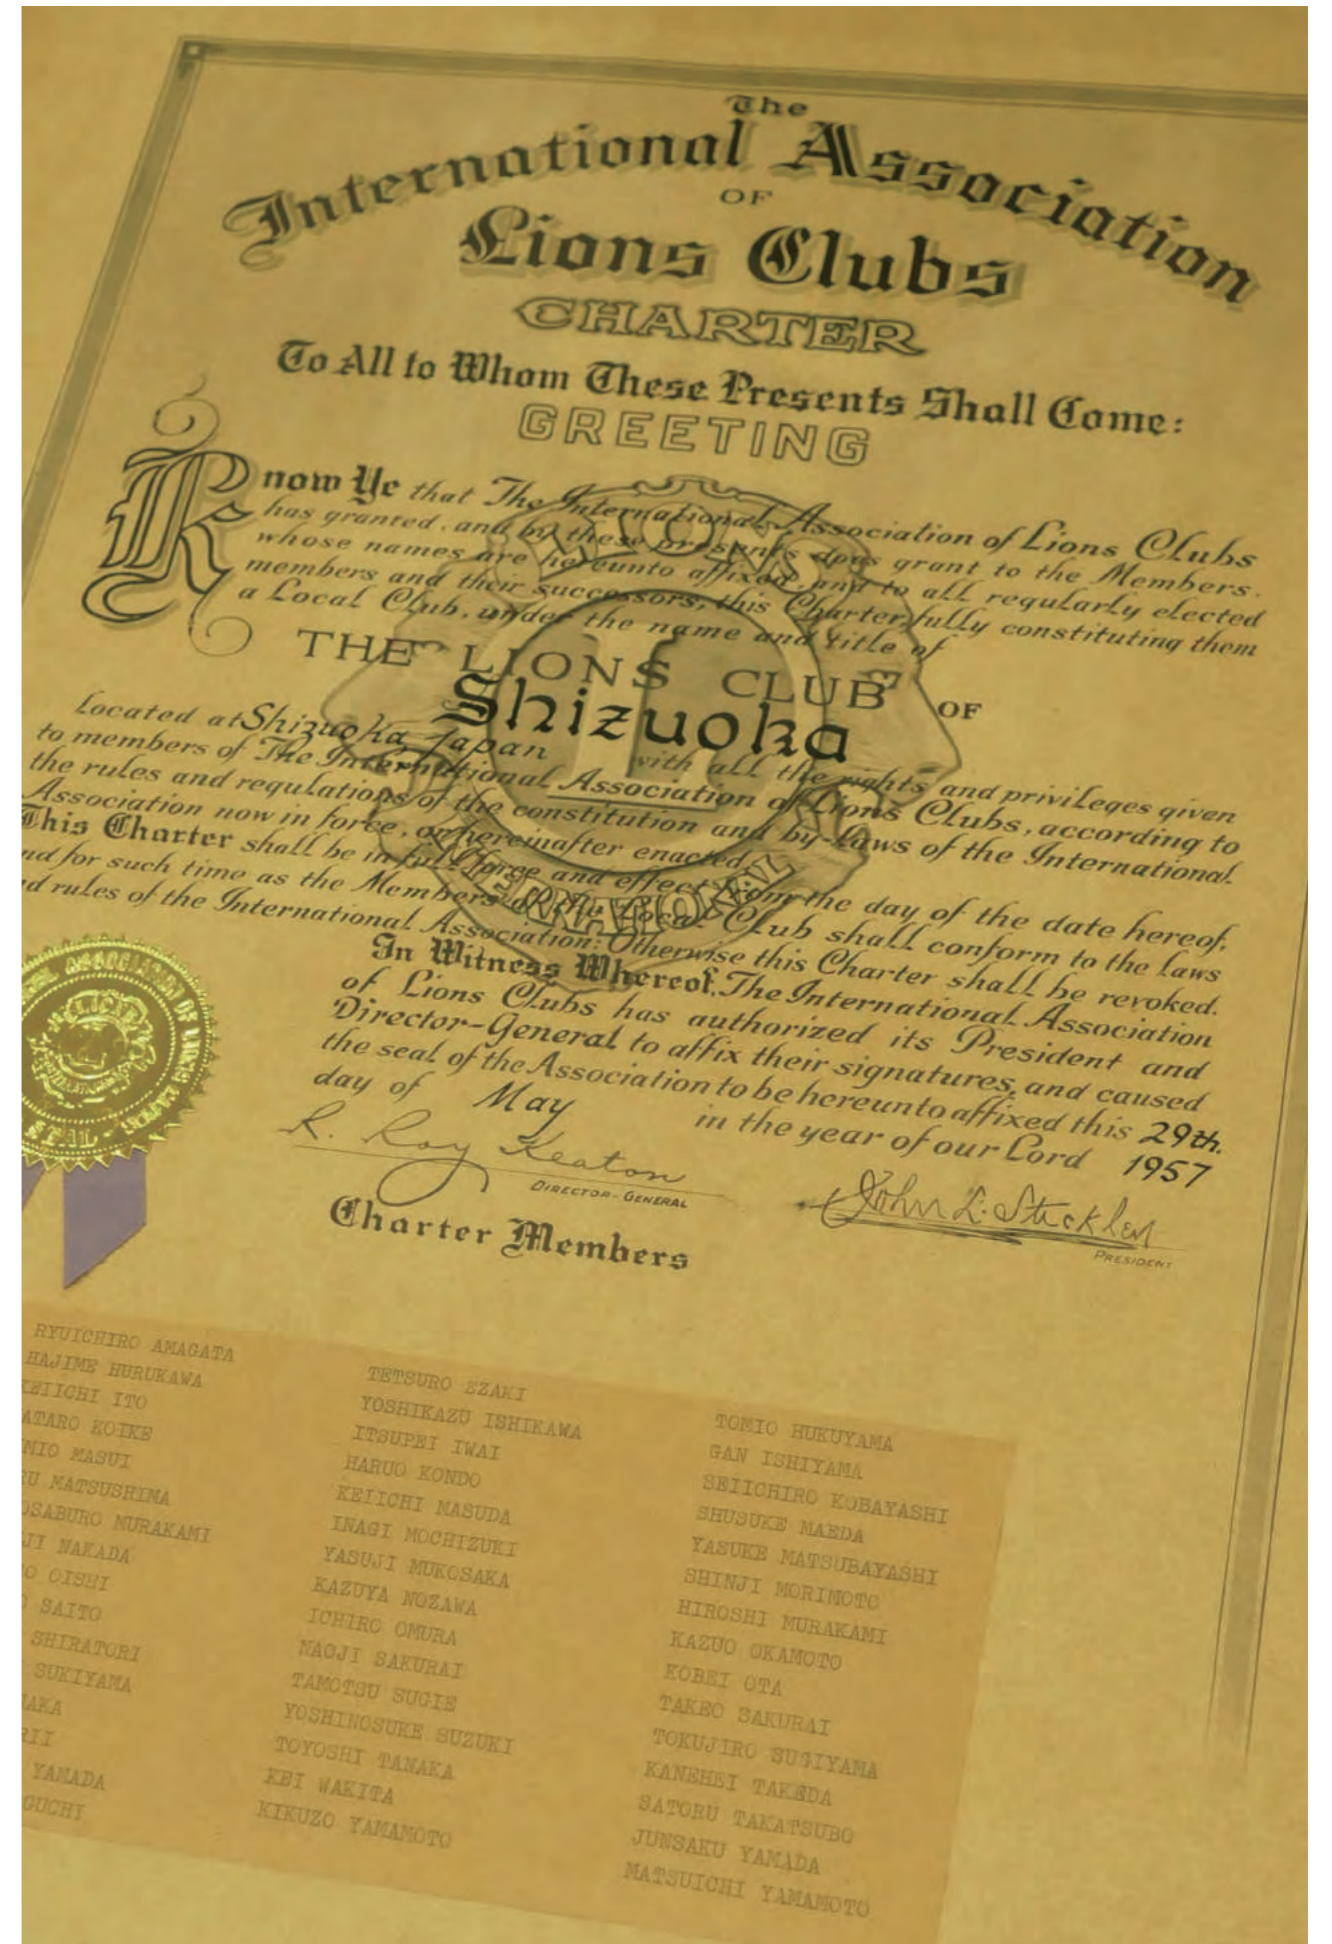 The
International Association
OF
Lions Clubs
CHARTER
To All to Whom These Presents Shall Come:
GREETING
Know Ye that The International Association of Lions Clubs
has granted, and by these presents does grant to the Members,
whose names are hereunto affixed, and to all regularly elected
members and their successors, this Charter, fully constituting them
a Local Club, under the name and title of
THE LIONS CLUB OF
Shizuoka
Located at Shizuoka, Japan with all the rights and privileges given
to members of The International Association of Lions Clubs, according to
the rules and regulations of the constitution and by-laws of the International
Association now in force, or hereinafter enacted.
This Charter shall be in full force and effect from the day of the date hereof,
nd for such time as the Members of the Local Club shall conform to the laws
d rules of the International Association: Otherwise this Charter shall be revoked.
In Witness Whereof, The International Association
of Lions Clubs has authorized its President and
Director-General to affix their signatures, and caused
the seal of the Association to be hereunto affixed this 29th.
day of May in the year of our Lord 1957
R. Roy Keaton
DIRECTOR-GENERAL
John L. Stickley
PRESIDENT
LIONS
INTERNATIONAL
ASSOCIATION OF LIONS
SEAL
Charter Members
RYUICHIRO AMAGATA
HAJIME HURUKAWA
KEIICHI ITO
ATARO KOIKE
MIO MASUI
RU MATSUSHIMA
OSABURO MURAKAMI
JI NAKADA
O OISHI
O SAITO
SHIRATORI
SUKIYAMA
NAKA
RII
YAMADA
GUCHI
TETSURO EZAKI
YOSHIKAZU ISHIKAWA
ITSUPEI IWAI
HARUO KONDO
KEIICHI MASUDA
INAGI MOCHIZUKI
YASUJI MUKOSAKA
KAZUYA NOZAWA
ICHIRO OMURA
NAOJI SAKURAI
TAMOTSU SUGIE
YOSHINOSUKE SUZUKI
TOYOSHI TANAKA
KEI WAKITA
KIKUZO YAMAMOTO
TOMIO HUKUYAMA
GAN ISHIYAMA
SEIICHIRO KOBAYASHI
SHUSUKE MAEDA
YASUKE MATSUBAYASHI
SHINJI MORIMOTO
HIROSHI MURAKAMI
KAZUO OKAMOTO
KOBEI OTA
TAKEO SAKURAI
TOKUJIRO SUGIYAMA
KANEHEI TAKEDA
SATORU TAKATSUBO
JUNSAKU YAMADA
MATSUICHI YAMAMOTO